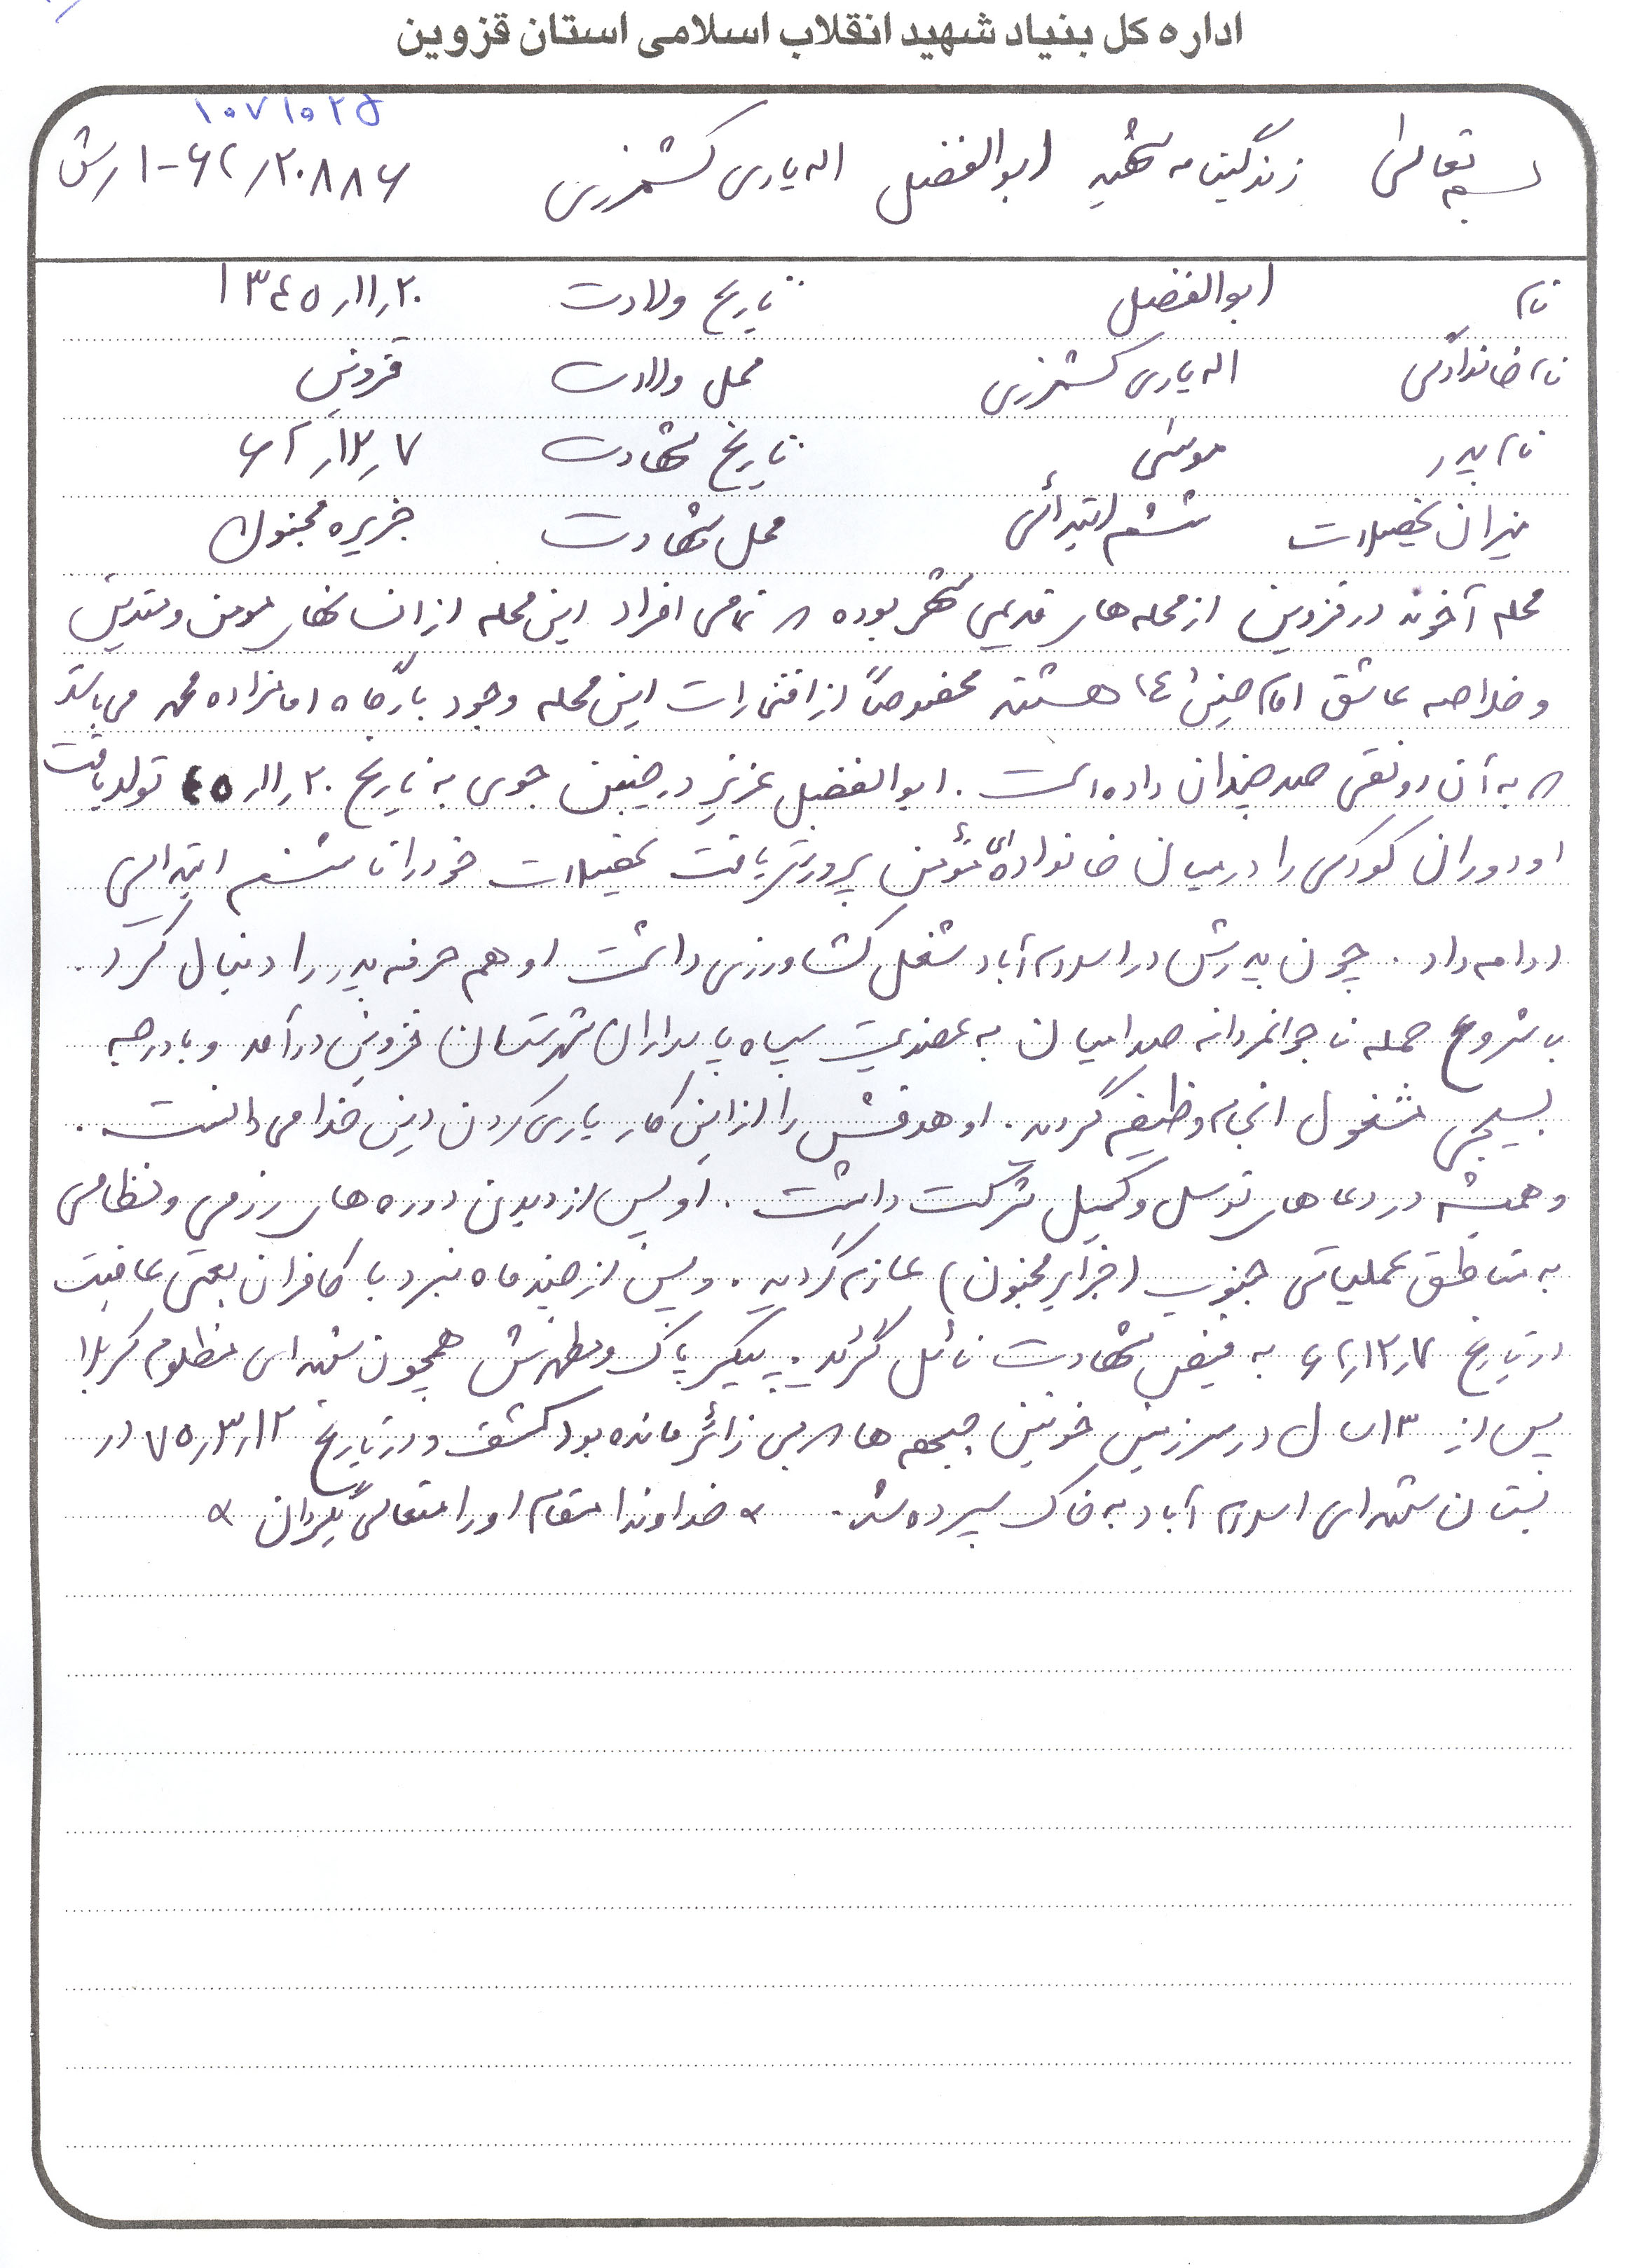 اداره کل بنیاد شهید انقلاب اسلامی استان قزوین
۱۰۷۱۰۲۵
بسمه تعالی زندگینامه شهید ابوالفضل اله یاری کشمرزی ۱-۶۲/۲۰۸۸۶ / رش
نام ابوالفضل تاریخ ولادت ۱۳۴۵٫۱۱٫۲۰
نام خانوادگی اله یاری کشمرزی محل ولادت قزوین
نام پدر موسی تاریخ شهادت ۶۲٫۱۲٫۷
میزان تحصیلات ششم ابتدائی محل شهادت جزیره مجنون
محله آخوند در قزوین از محله های قدیمی شهر بوده که تمامی افراد این محله از انسانهای مومن و متدین
و خلاصه عاشق امام حسین (ع) هستند مخصوصاً از افتخارات این محله وجود بارگاه امامزاده محمد می باشد
که به آن رونقی صد چندان داده است. ابوالفضل عزیز در چنین جوی به تاریخ ۴۵٫۱۱٫۲۰ تولد یافت
او دوران کودکی را در میان خانواده ای مؤمن پرورش یافت تحصیلات خود را تا ششم ابتدایی
ادامه داد. چون پدرش در اسلام آباد شغل کشاورزی داشت او هم حرفه پدر را دنبال کرد.
با شروع حمله ناجوانمردانه صدامیان به عضویت سپاه پاسداران شهرستان قزوین درآمد و با درجه
بسیجی مشغول انجام وظیفه گردید. او هدفش را از این کار یاری کردن دین خدا می دانست.
و همیشه در دعاهای توسل و کمیل شرکت داشت. او پس از دیدن دوره های رزمی و نظامی
به مناطق عملیاتی جنوب (جزایر مجنون) عازم گردید. و پس از چند ماه نبرد با کافران بعثی عاقبت
در تاریخ ۶۲٫۱۲٫۷ به فیض شهادت نائل گردید. پیکر پاک و مطهرش همچون شهدای مظلوم کربلا
پس از ۱۳ سال در سرزمین خونین جبهه ها که بی زائر مانده بود کشف و در تاریخ ۷۵٫۳٫۱۲ در
بستان شهدای اسلام آباد به خاک سپرده شد. « خداوندا مقام او را متعالی بگردان »